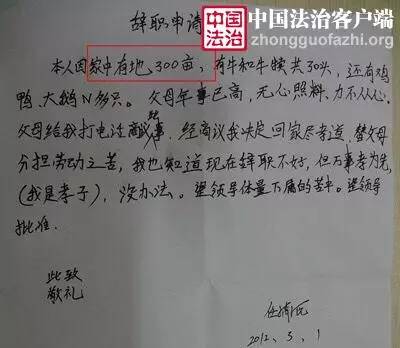 辞职申请
中国法治
中国法治客户端
zhongguofazhi.org
本人因家中有地300亩，有牛和牛犊共30头，还有鸡
鸭、大鹅N多只。父母年事已高，无心照料、力不从心。
父母给我打电话商议，经商议我决定回家尽孝道，替父母
分担劳动之苦，我也知道现在辞职不好，但万事孝为先，
(我是孝子)，没办法。望领导体量下属的苦中。望领导
批准.
此致
敬礼
2012. 3. 1